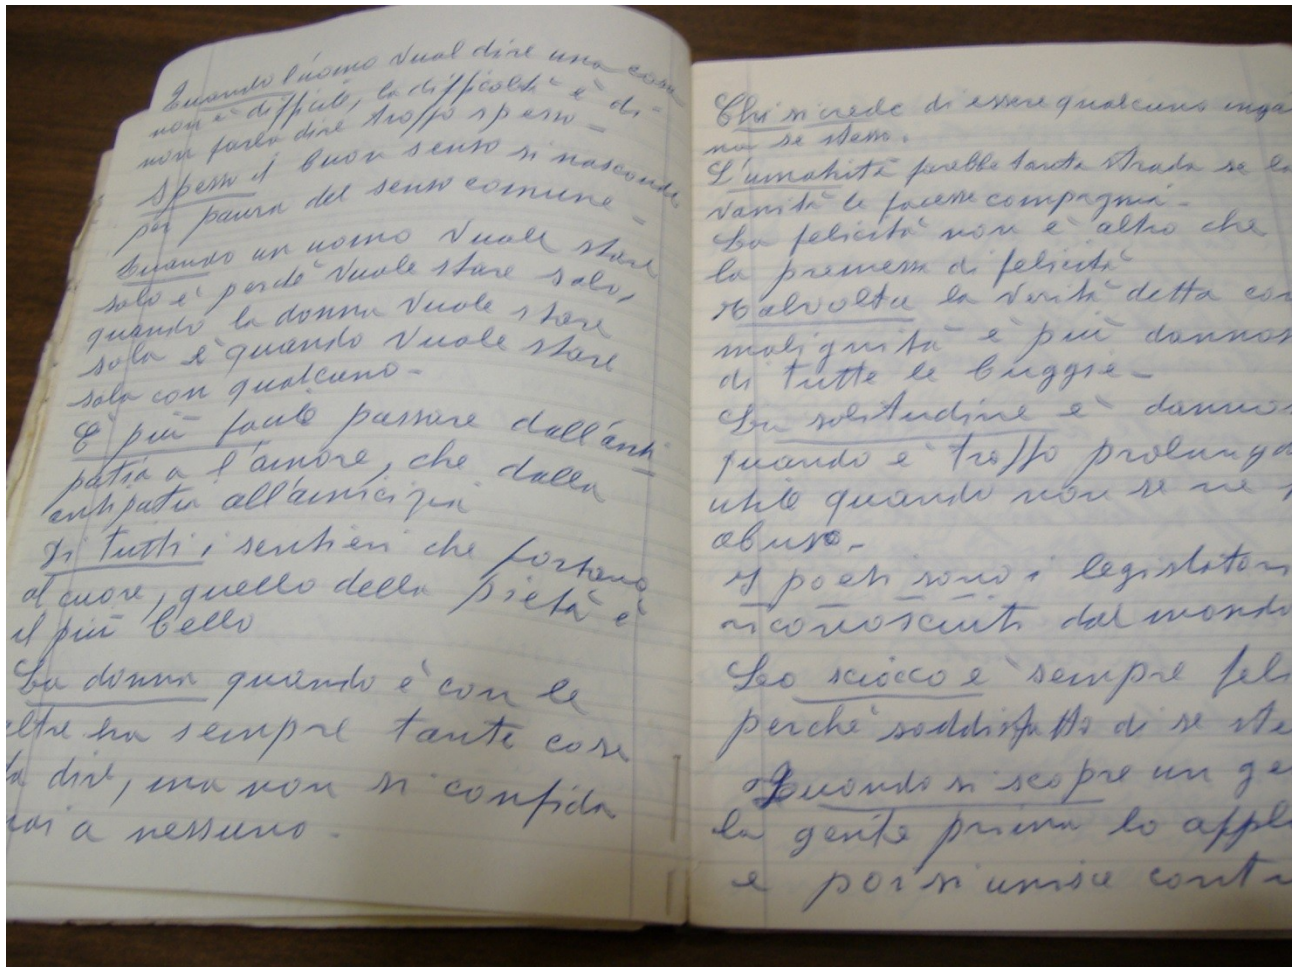 Quando l'uomo vual dire una cosa
non è difficile, la difficoltà è di-
non farla dire troppo spesso -
Spesso il buon senso si nasconde
per paura del senso comune -
Quando un uomo vuole stare
solo è perchè vuole stare solo,
quando la donna vuole stare
sola è quando vuole stare
sola con qualcuno -
È più facile passare dall'anti
patia a l'amore, che dalla
antipatia all'amicizia
Di tutti i sentieri che portano
al cuore, quello della pietà è
il più bello
La donna quando è con le
altre ha sempre tante cose
da dire, ma non si confida
mai a nessuno -
Chi si crede di essere qualcuno inga
na se stesso.
L'umanità farebbe tanta strada se la
vanità le facesse compagnia -
La felicità non è altro che
la premessa di felicità
Talvolta la verità detta con
malignità è più dannos
di tutte le buggie -
La solitudine è dannos
quando è troppo prolunga
utile quando non se ne
abusa -
I poeti sono i legislatori
riconosciuti dal mondo
Lo sciocco è sempre feli
perchè soddisfatto di se ste
Quando si scopre un ge
la gente prima lo appla
e poi si unisce contr